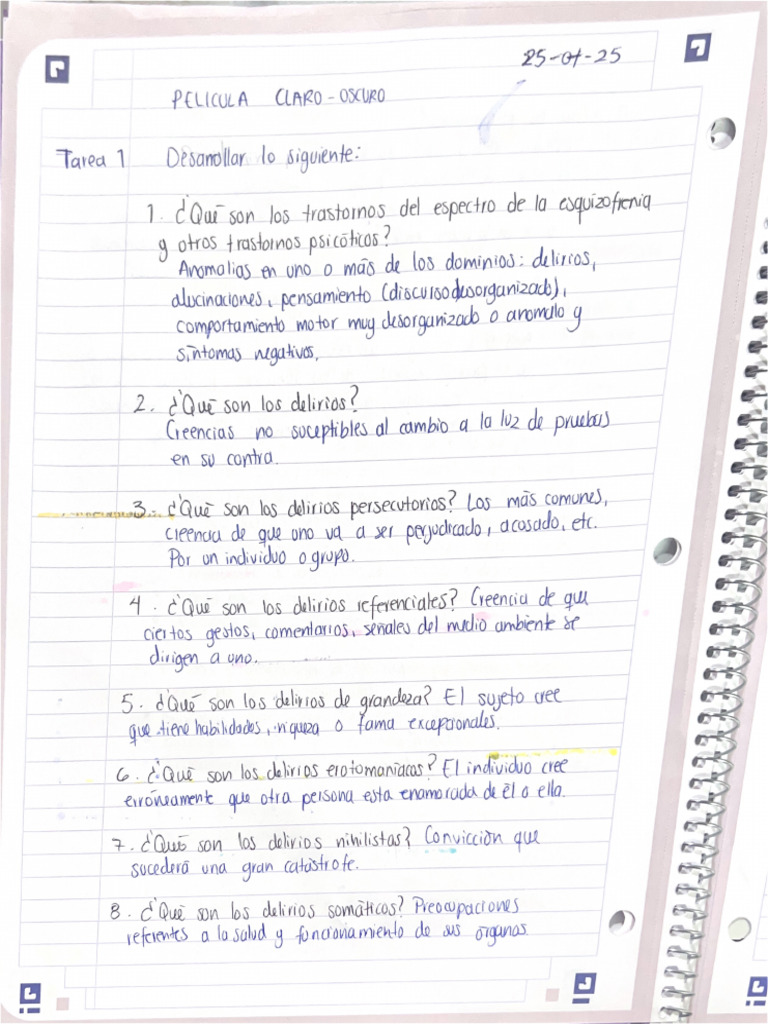 25-01-25
PELICULA CLARO-OSCURO
Tarea 1 Desarrollar lo siguiente:
1. ¿Qué son los trastornos del espectro de la esquizofrenia
y otros trastornos psicóticos?
Anomalias en uno o más de los dominios: delirios,
alucinaciones, pensamiento (discurso desorganizado),
comportamiento motor muy desorganizado o anomulo y
síntomas negativos.
2. ¿Qué son los delirios?
Creencias no suceptibles al cambio a la luz de pruebas
en su contra.
3. ¿Qué son los delirios persecutorios? Los más comunes,
creencia de que uno va a ser perjudicado, acosado, etc.
Por un individuo o grupo.
4. ¿Qué son los delirios referenciales? Creencia de que
ciertos gestos, comentarios, señales del medio ambiente se
dirigen a uno.
5. ¿Qué son los delirios de grandeza? El sujeto cree
que tiene habilidades, riqueza o fama excepcionales.
6. ¿Qué son los delirios erotomaníacos? El individuo cree
erróneamente que otra persona esta enamorada de él o ella.
7. ¿Qué son los delirios nihilistas? Convicción que
sucederá una gran catástrofe.
8. ¿Qué son los delirios somáticos? Preocupaciones
referentes a la salud y funcionamiento de sus órganos